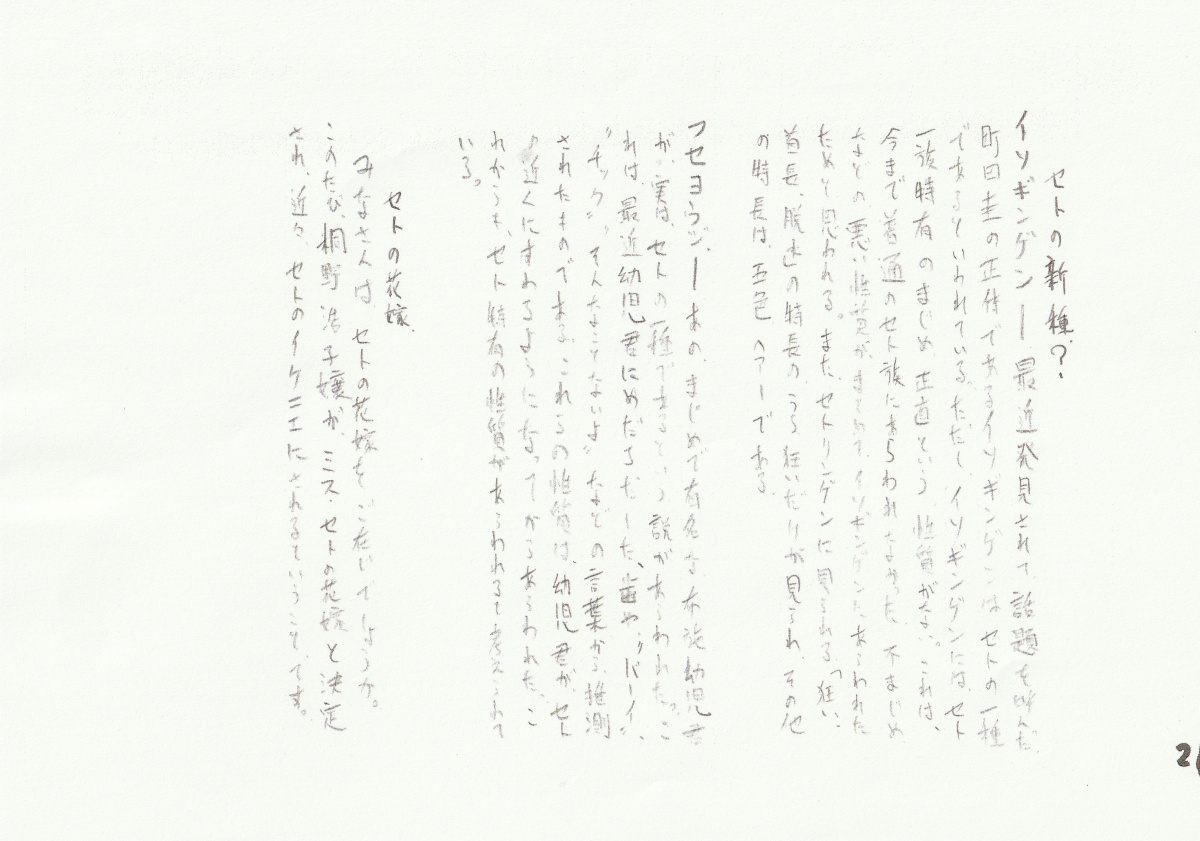 セトの新種?
イソギンゲン ー 最近発見されて話題を呼んだ
町田圭の正体であるイソギンゲンは、セトの一種
であるといわれている。ただし、イソギンゲンには、セト
一族特有のまじめ、正直という、性質がない。これは、
今まで普通のセト族にあらわれなかった、不まじめ
などの、悪い性質が、まとめて、イソギンゲンにあらわれた
ためと思われる。また、セトリンゲンに見られる「狂い、
首長、脱走」の特長の、うち狂いだけが見られ、その他
の特長は、五色ヘアーである。
フセヨウジ、ー あの、まじめで有名な、布施幼児君
が、実は、セトの一種であるという説があらわれた。こ
れは、最近幼児君にめだちだした、歯や、〃バーイ〃、
〃チック〃、そんなことないよ〃などの言葉から推測
されたものである。これらの性質は、幼児君が、セト
の近くにすわるようになってからあらわれた、こ
れからも、セト特有の性質があらわれると考えられて
いる。
セトの花嫁
みなさんは、セトの花嫁をご存じでしょうか。
このたび、桐野浩子嬢が、ミス・セトの花嫁と決定
され、近々、セトのイケニエにされるということです。
2